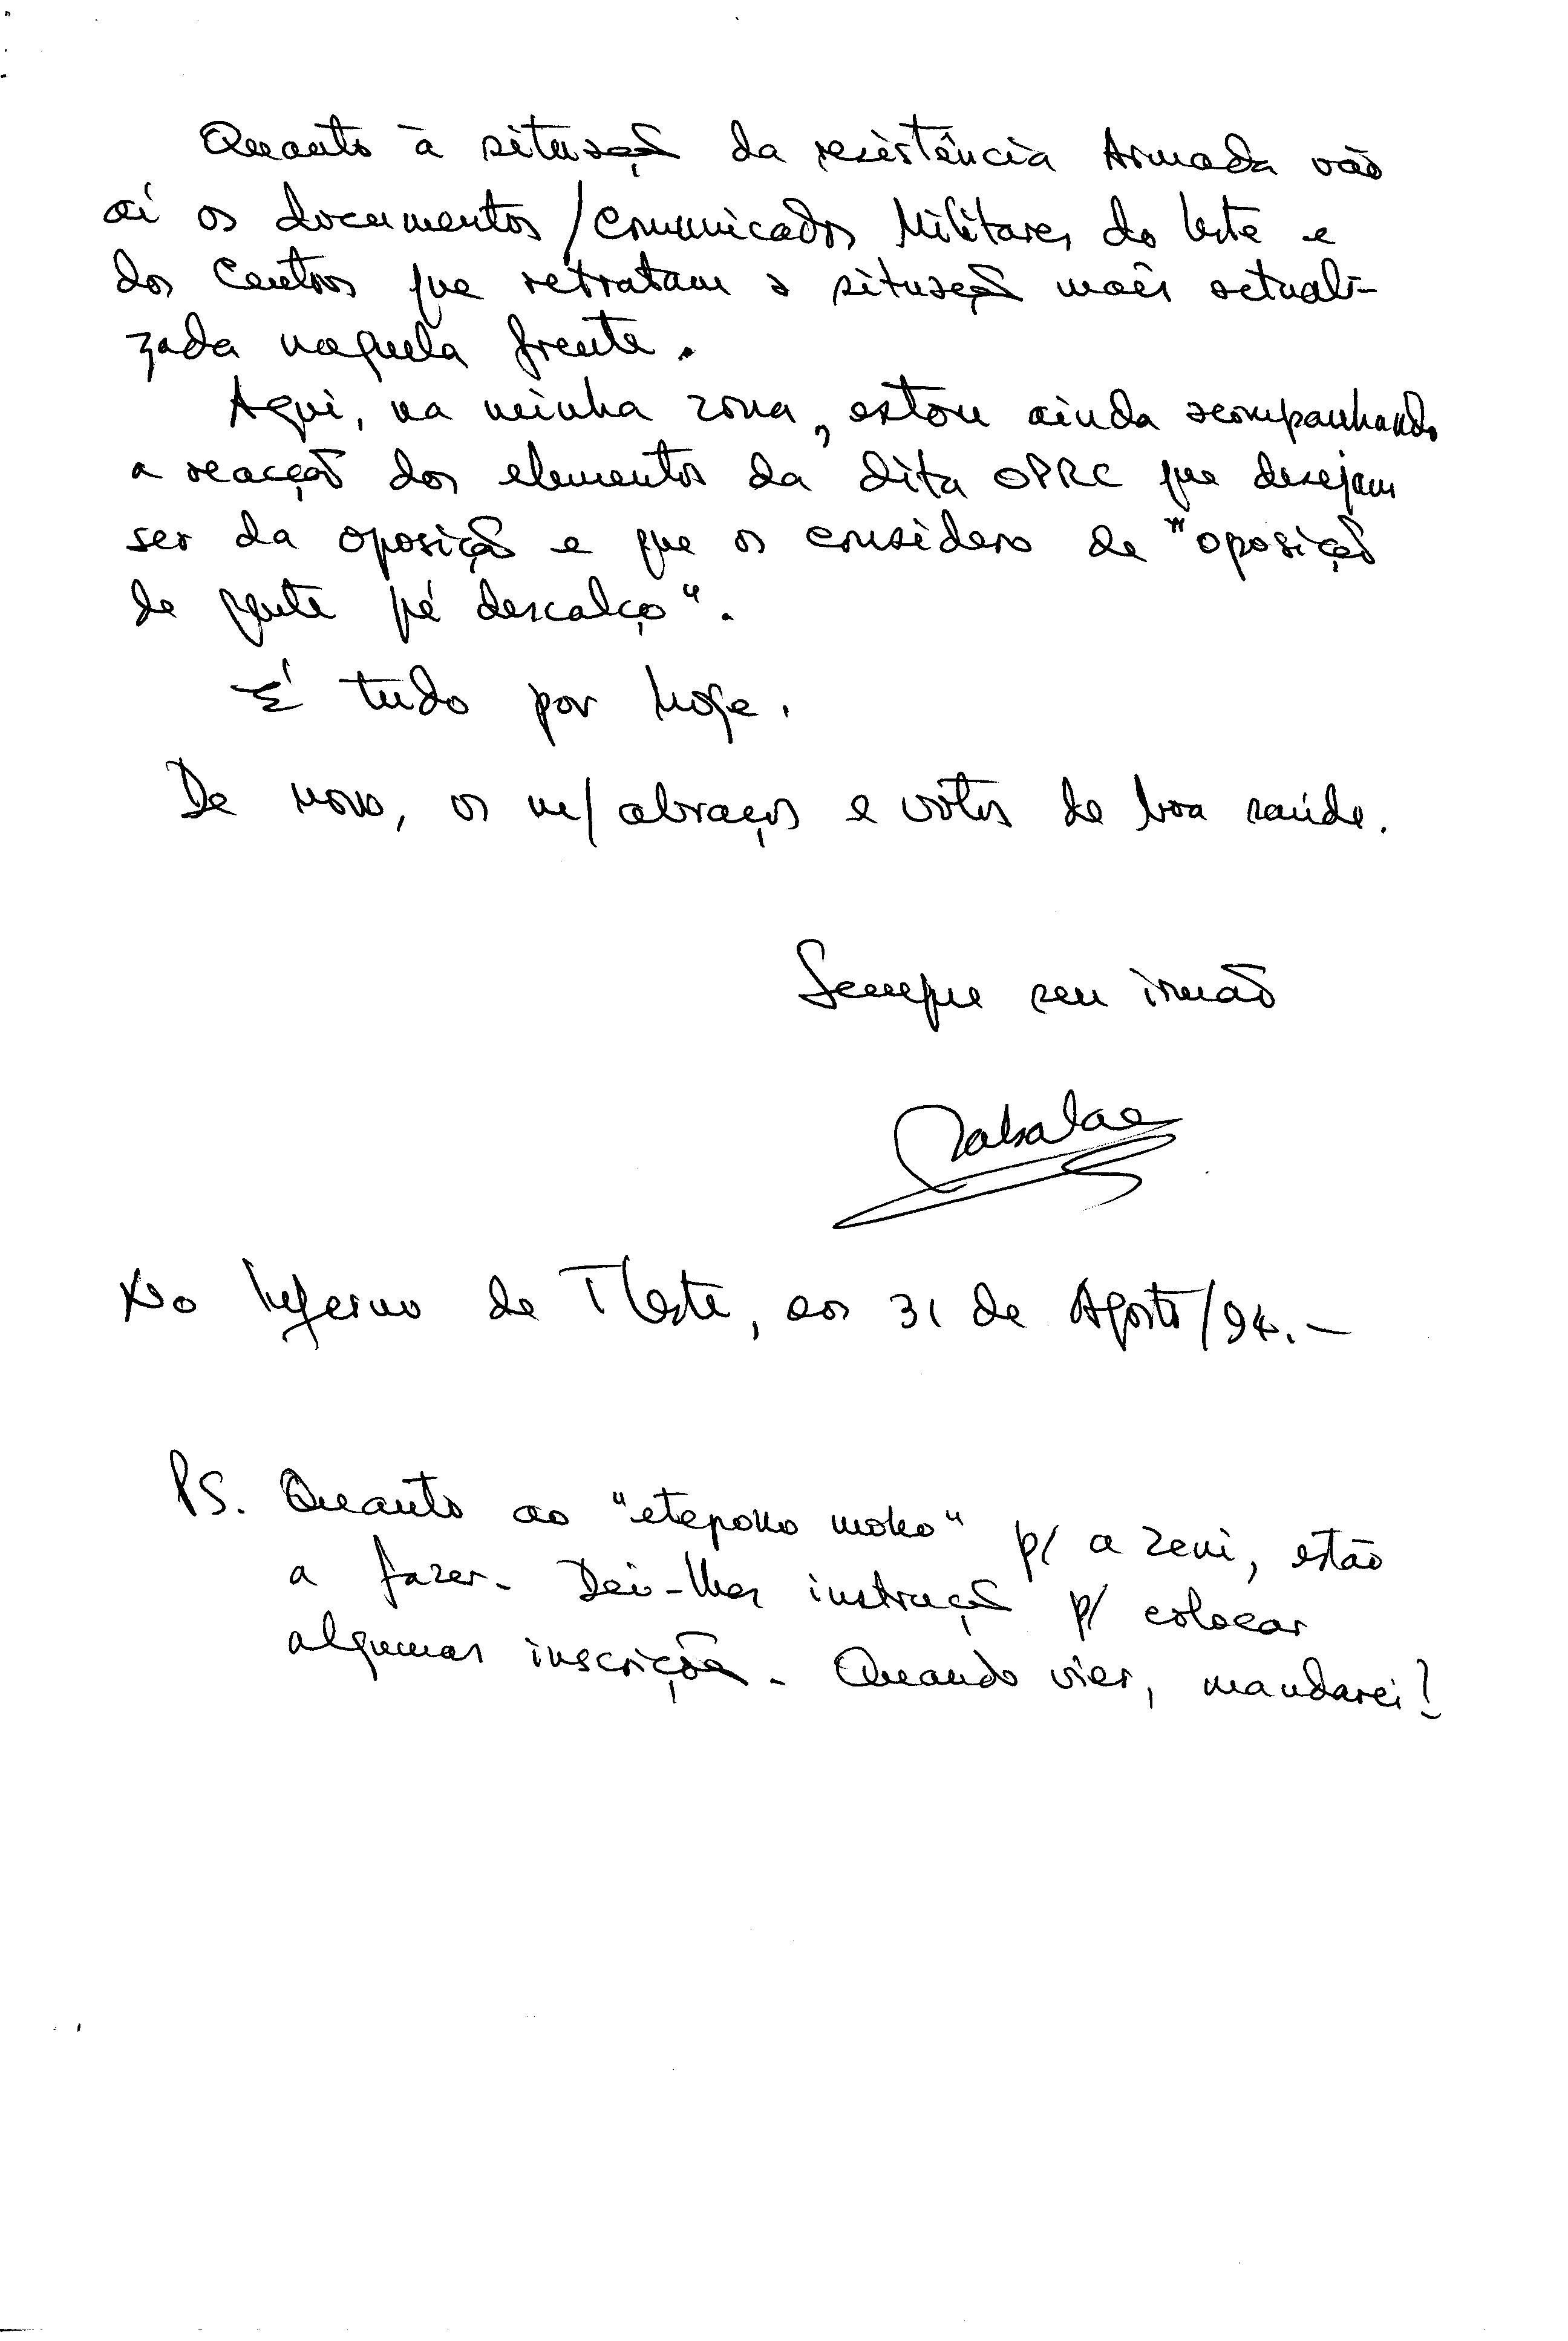 Quanto à situação da resistência Armada vão
aí os documentos/comunicados Militares do Leste e
dos Centros que retratam a situação mais actuali-
zada naquela frente.
Aqui, na minha zona, estou ainda acompanhando
a reacção dos elementos da dita OPRC que desejam
ser da oposição e que os considero de "oposição
de gente pé descalço".
É tudo por hoje.
De novo, os m/ abraços e votos de boa saúde.
Sempre seu irmão
Sabalae
No Inferno de TLeste, aos 31 de Agosto/94.-
PS. Quanto ao "etepoko moko" p/ a Zeni, estão
a fazer. Dei-lhes instrução p/ colocar
algumas inscrições. Quando vier, mandarei!